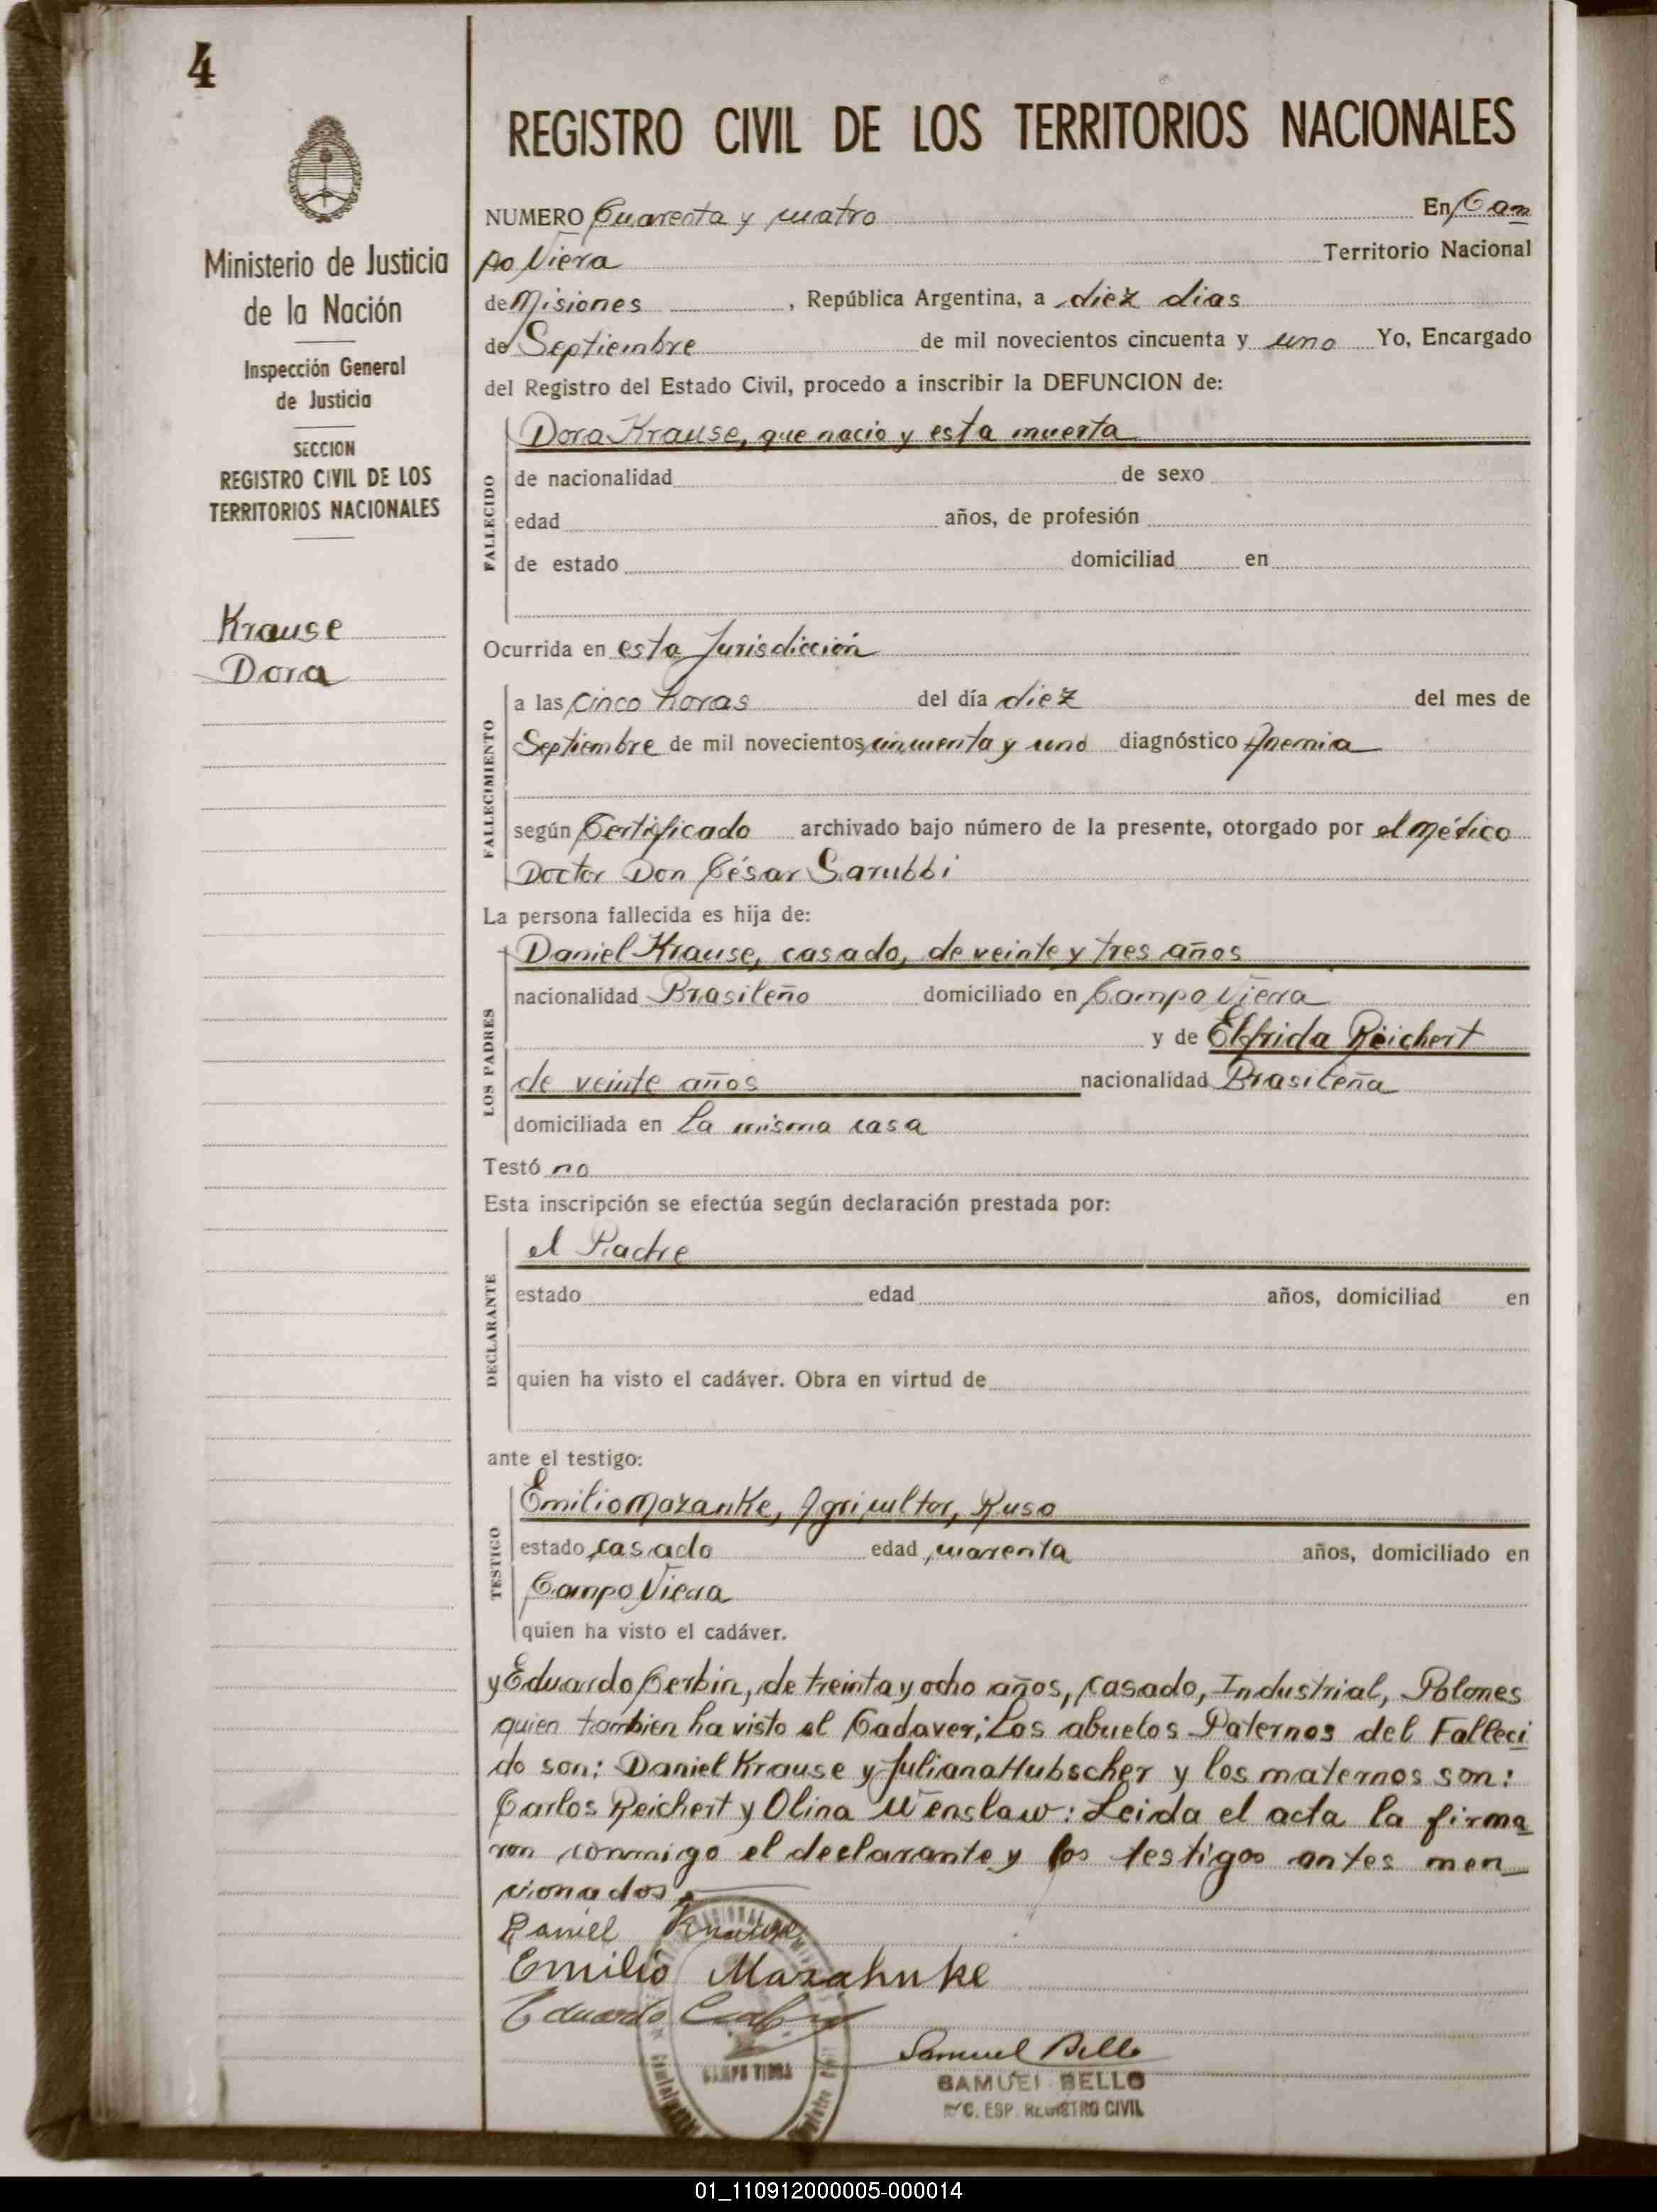 4
REGISTRO CIVIL DE LOS TERRITORIOS NACIONALES
Ministerio de Justicia
de la Nación
Inspección General
de Justicia
SECCION
REGISTRO CIVIL DE LOS
TERRITORIOS NACIONALES
Krause
Dora
NUMERO Cuarenta y cuatro En Cam
po Viera Territorio Nacional
de Misiones, República Argentina, a diez dias
de Septiembre de mil novecientos cincuenta y uno Yo, Encargado
del Registro del Estado Civil, procedo a inscribir la DEFUNCION de:
Dora Krause, que nacio y esta muerta
FALLECIDO
de nacionalidad de sexo
edad años, de profesión
de estado domiciliad en
Ocurrida en esta Jurisdicción
FALLECIMIENTO
a las cinco horas del día diez del mes de
Septiembre de mil novecientos cincuenta y uno diagnóstico Anemia
según Certificado archivado bajo número de la presente, otorgado por el Médico
Doctor Don César Sarubbi
La persona fallecida es hija de:
LOS PADRES
Daniel Krause, casado, de veinte y tres años
nacionalidad Brasileño domiciliado en Campo Viera
y de Elfrida Reichert
de veinte años nacionalidad Brasileña
domiciliada en La misma casa
Testó no
Esta inscripción se efectúa según declaración prestada por:
DECLARANTE
el Padre
estado edad años, domiciliad en
quien ha visto el cadáver. Obra en virtud de
ante el testigo:
TESTIGO
Emilio Mazanke, Agricultor, Ruso
estado casado edad cuarenta años, domiciliado en
Campo Viera
quien ha visto el cadáver.
y Eduardo Cerbin, de treinta y ocho años, casado, Industrial, Polones
quien tambien ha visto el Cadaver; Los abuelos Paternos del Falleci
do son: Daniel Krause y Juliana Hubscher y los maternos son:
Carlos Reichert y Olina Wenslaw: Leida el acta la firma
ron conmigo el declarante y los testigos antes men
cionados.
Daniel Krause
Emilio Mazahnke
Eduardo
CAMPO VIERA
Samuel Bello
SAMUEL BELLO
ENC. ESP. REGISTRO CIVIL
01_110912000005-000014